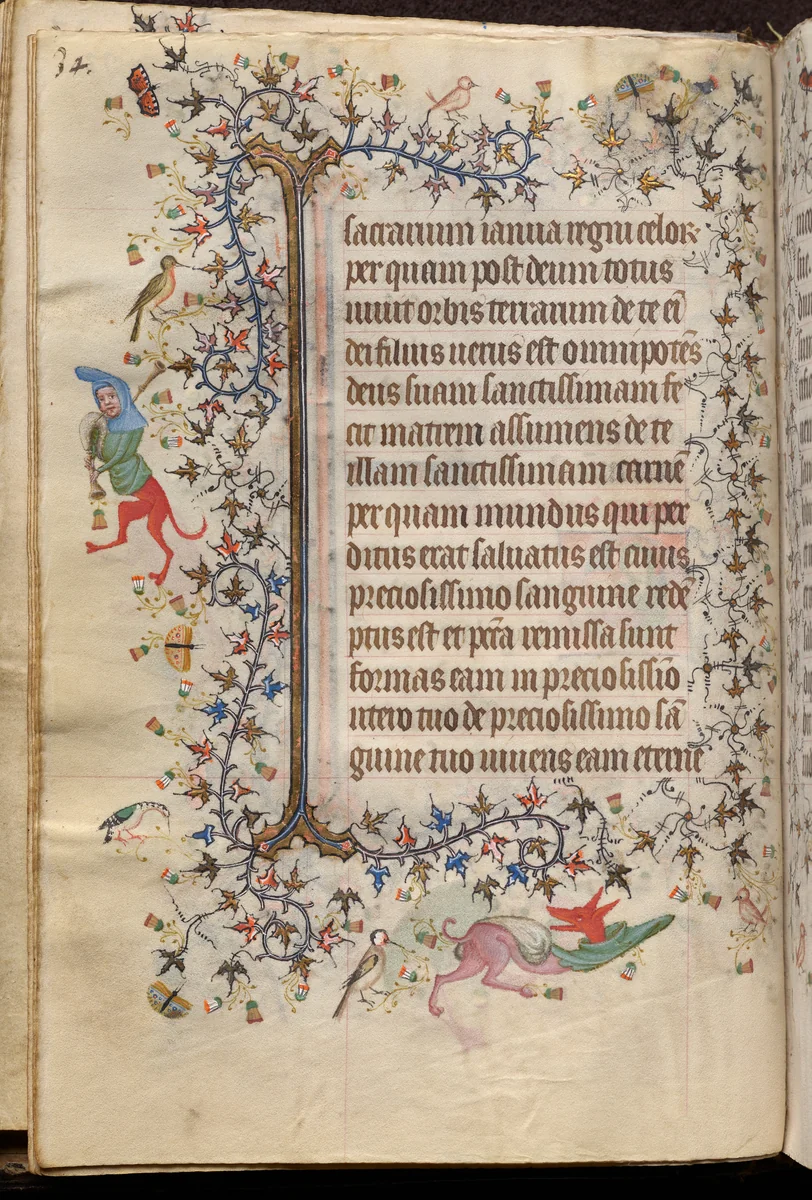 32.
sacrarium ianua regni celor
per quam post deum totus
uiuit orbis terrarum de te ei
dei filius uerus est omnipotēs
deus suam sanctissimam fe
cit matrem assumens de te
illam sanctissimam carnē
per quam mundus qui per
ditus erat saluatus est cuius
preciosissimo sanguine redē
ptus est et pc̄ta remissa sunt
formas eam in preciosissīo
utero tuo de preciosissimo sā
guine tuo uiuens eam eterne